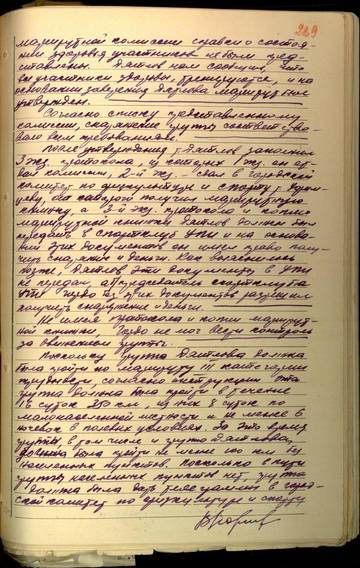 229
маршрутной комиссии справки о состоя-
нии здоровья участников не были пред-
ставлены. Дятлов нам сообщил, что
все участники здоровы, тренируются, и на
основании заверения Дятлова маршрут был
утвержден.
Согласно списку представленному
комиссии, снаряжение группы соответствовало
всем требованиям.
После утверждения, Дятлов заполнил
3 экз. протокола, из которых 1 экз. он
комиссии, 2-й экз. сдал в городской
комитет по физкультуре и спорту,
у которой получил маршрутную
книжку, а 3-й экз. протокола и копию
маршрутной книжки Дятлов должен был
передать в спортклуб УПИ и на основа-
нии этих документов он имел право полу-
чить снаряжение и деньги. Как выяснилось
позже, Дятлов эти документы в УПИ
не передал, а председатель спортклуба
УПИ без этих документов разрешил
получить снаряжение и деньги.
Не имея протокола и копии маршрут-
ной книжки, Гордо не мог вести контроль
за движением группы.
Поскольку группа Дятлова должна
была пройти по маршруту III категории
трудности, согласно инструкции эта
группа должна была пройти в течение
16 суток 350 км из них 8 суток по
малонаселенной местности и не менее 6
ночевок в полевых условиях. За это время
группы в том числе и группа Дятлова,
должна была пройти не менее
населенных пунктов. Поскольку в пути
группы населенных пунктов нет, группа
должна была дать телеграмму в город-
ской комитет по физкультуре и спорту